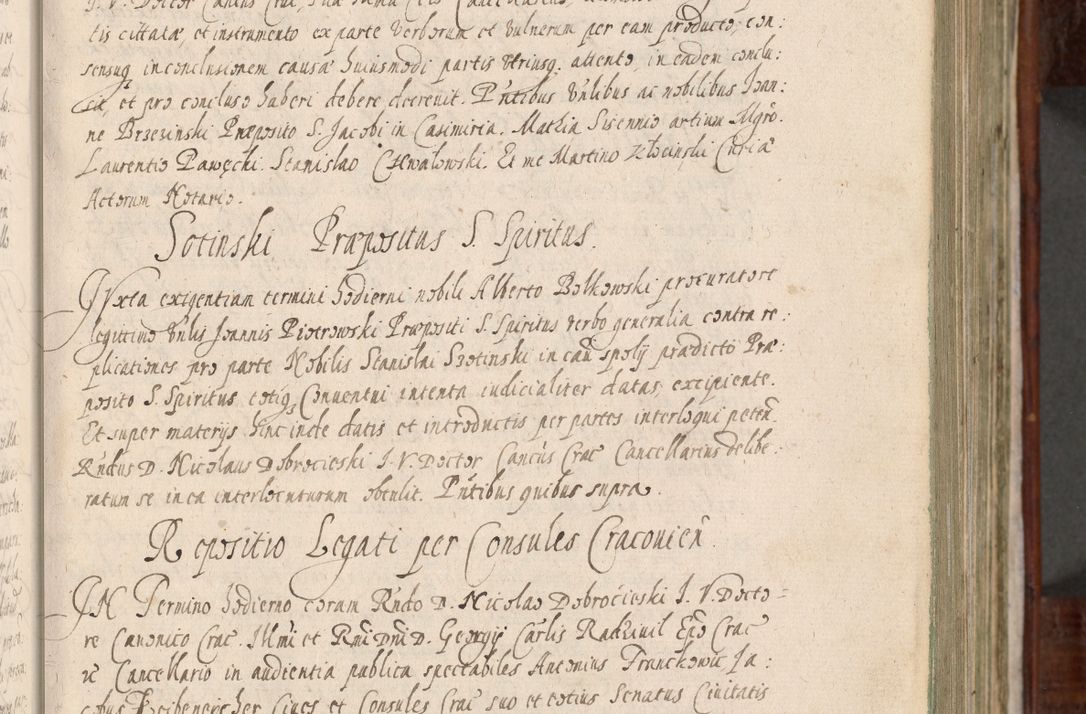 tis cittatæ, et instrumento ex parte verborum et vulnerum per eam producto, con:
sensuq in conclusionem causæ huiusmodi partis utriusq. attento, in eadem conclu:
sit, et pro concluso haberi debere decreuit. Pñtibus Vnlibus ac nobilibus Joan:
ne Brzezinski Præposito S. Jacobi in Casimiria. Mathia Sisennio artium Mgro.
Laurentio Pawęcki. Stanislao Czewalowski. Et me Martino Złocinski Curiæ
Actorum Notario.
Sotinski Præpositus S. Spiritus.
IVxta exigentiam termini hodierni nobili Alberto Bolkowski procuratore
legittimo Vnlis Joannis Piotrowski Præpositi S. Spiritus verbo generalia contra re:
plicationes pro parte Nobilis Stanislai Szotinski in cau spolij prædicto Præ:
posito S. Spiritus totiq Conuentui intenta iudicialiter datas, excipiente.
Et super materijs hinc inde datis et introductis per partes interloqui peteñ.
Rñdus D. Nicolaus Dobrocieski I. V. Doctor Cancus Crac Cancellarius delibe:
ratum se in ea interlocuturum obtulit. Pñtibus quibus supra.
Repositio Legati per Consules Cracouieñ.
IN Termino hodierno coram Rñdo D. Nicolao Dobrocieski I. V. Docto=
re Canonico Crac. Illmi et Rmi Dñi D. Georgij Carlis Radziuil Epo Crac
Cancellario in audientia publica spectabiles Antonius Franckowic, Ja:
cobus Cives et Consules Crac suo et totius Senatus Ciuitatis